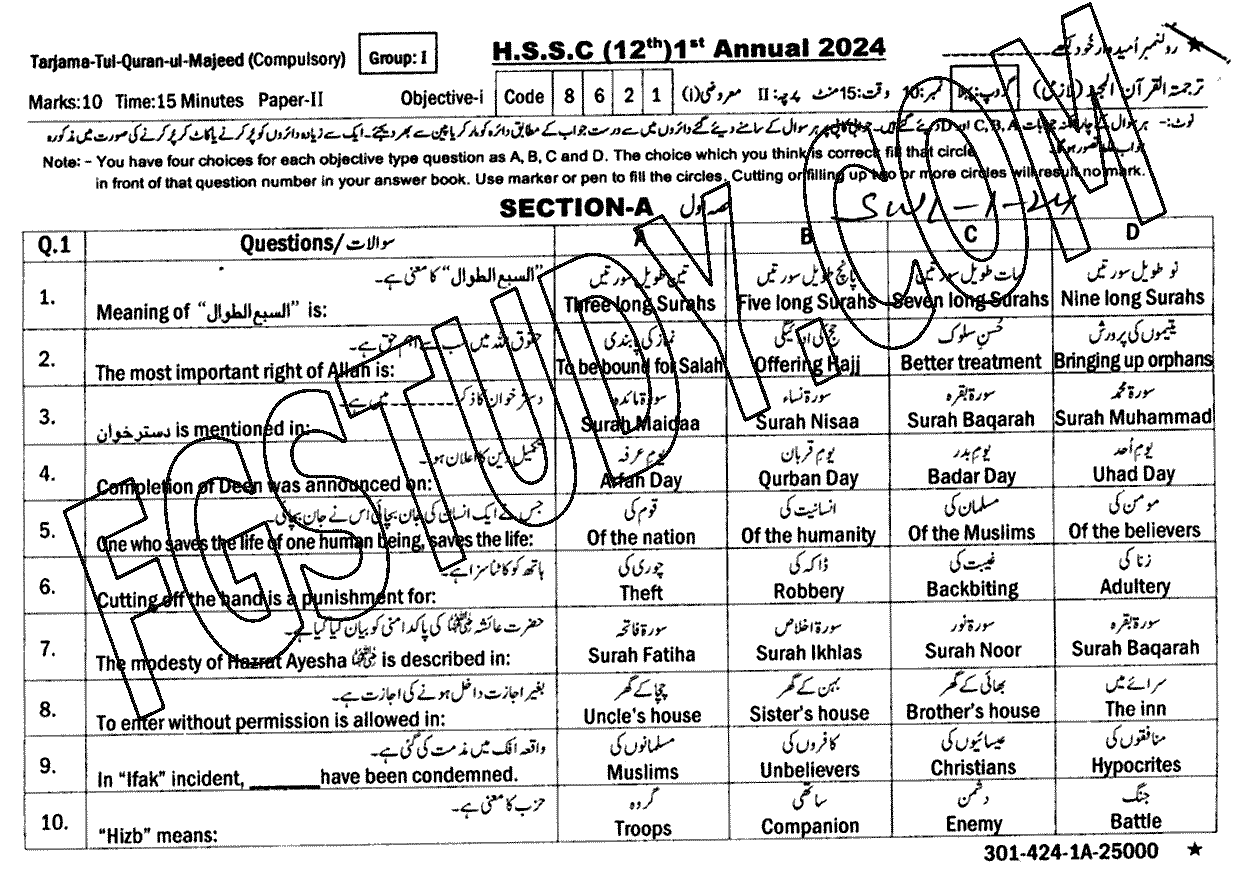 Tarjama-Tul-Quran-ul-Majeed (Compulsory) Group: I H.S.S.C (12th) 1st Annual 2024 رولنمبر اُمیدوار خُود لکھے ★
Marks:10 Time:15 Minutes Paper-II Objective-i Code 8 6 2 1 معروضی (i) پرچہ: II وقت:15 منٹ نمبر:10 ترجمۃ القرآن المجید (لازمی)
Note: - You have four choices for each objective type question as A, B, C and D. The choice which you think is correct; fill that circle
in front of that question number in your answer book. Use marker or pen to fill the circles. Cutting or filling up two or more circles will result no mark.
SECTION-A حصہ اول SWL-1-24
Q.1 Questions/سوالات A B C D
"السبع الطوال" کا معنٰی ہے۔ تین طویل سورتیں پانچ طویل سورتیں سات طویل سورتیں نو طویل سورتیں
1. Meaning of "السبع الطوال" is: Three long Surahs Five long Surahs Seven long Surahs Nine long Surahs
حقوق اللہ میں سب سے اہم حق ہے۔ نماز کی پابندی حج کی ادائیگی حُسنِ سلوک یتیموں کی پرورش
2. The most important right of Allah is: To be bound for Salah Offering Hajj Better treatment Bringing up orphans
دسترخوان کا ذکر ________ میں ہے۔ سورۃ مائدہ سورۃ نساء سورۃ بقرہ سورۃ محمد
3. دسترخوان is mentioned in: Surah Maidaa Surah Nisaa Surah Baqarah Surah Muhammad
تکمیل دین کا اعلان ہوا۔ یومِ عرفہ یومِ قربان یومِ بدر یومِ اُحد
4. Completion of Deen was announced on: Arfah Day Qurban Day Badar Day Uhad Day
جس نے ایک انسان کی جان بچائی اس نے جان بچائی۔ قوم کی انسانیت کی مسلمان کی مومن کی
5. One who saves the life of one human being, saves the life: Of the nation Of the humanity Of the Muslims Of the believers
ہاتھ کو کاٹنا سزا ہے۔ چوری کی ڈاکہ کی غیبت کی زنا کی
6. Cutting off the hand is a punishment for: Theft Robbery Backbiting Adultery
حضرت عائشہ رضی اللہ عنہا کی پاکدامنی کو بیان کیا گیا ہے۔ سورۃ فاتحہ سورۃ اخلاص سورۃ نور سورۃ بقرہ
7. The modesty of Hazrat Ayesha رضی اللہ عنہا is described in: Surah Fatiha Surah Ikhlas Surah Noor Surah Baqarah
بغیر اجازت داخل ہونے کی اجازت ہے۔ چچا کے گھر بہن کے گھر بھائی کے گھر سرائے میں
8. To enter without permission is allowed in: Uncle's house Sister's house Brother's house The inn
واقعہ افک میں مذمت کی گئی ہے۔ مسلمانوں کی کافروں کی عیسائیوں کی منافقوں کی
9. In "Ifak" incident, ________ have been condemned. Muslims Unbelievers Christians Hypocrites
حزب کا معنٰی ہے۔ گروہ ساتھی دشمن جنگ
10. "Hizb" means: Troops Companion Enemy Battle
301-424-1A-25000 ★
FGSTUDY.COM